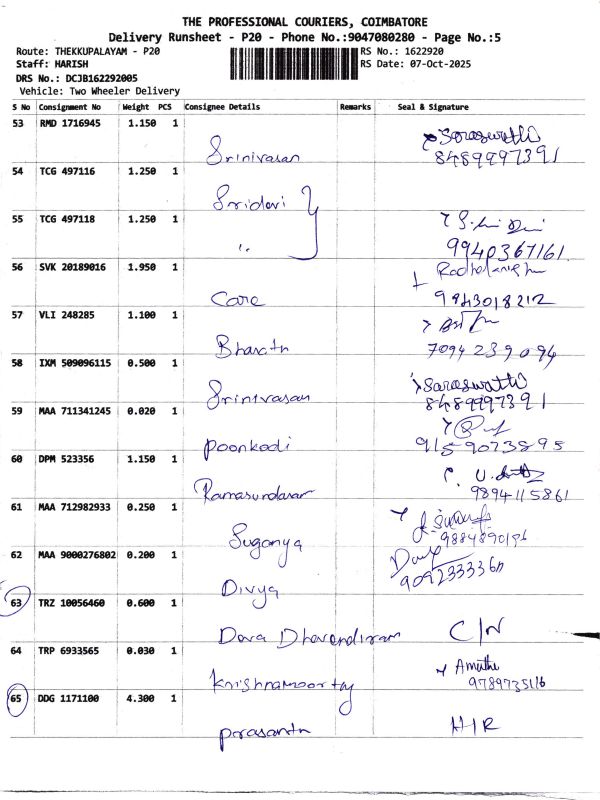 THE PROFESSIONAL COURIERS, COIMBATORE
Delivery Runsheet - P20 - Phone No.:9047080280 - Page No.:5
Route: THEKKUPALAYAM - P20
RS No.: 1622920
Staff: HARISH
RS Date: 07-Oct-2025
DRS No.: DCJB162292005
Vehicle: Two Wheeler Delivery
S No Consignment No Weight PCS Consignee Details Remarks Seal & Signature
53 RMD 1716945 1.150 1 Srinivasan Saraswathi
8489997391
54 TCG 497116 1.250 1 Sridevi
55 TCG 497118 1.250 1 ''
9940367161
56 SVK 20189016 1.950 1 Care
9943018212
57 VLI 248285 1.100 1 Bharath
7094239094
58 IXM 509096115 0.500 1 Srinivasan Saraswathi
8489997391
59 MAA 711341245 0.020 1 Poonkodi
915-9073895
60 DPM 523356 1.150 1 Ramasundaram
9894115861
61 MAA 712982933 0.250 1 Suganya
62 MAA 9000276802 0.200 1 Divya
63 TRZ 10056460 0.600 1 C/N
64 TRP 6933565 0.030 1 Krishnamoorthy Amutha
65 DDG 1171100 4.300 1 Prasanth